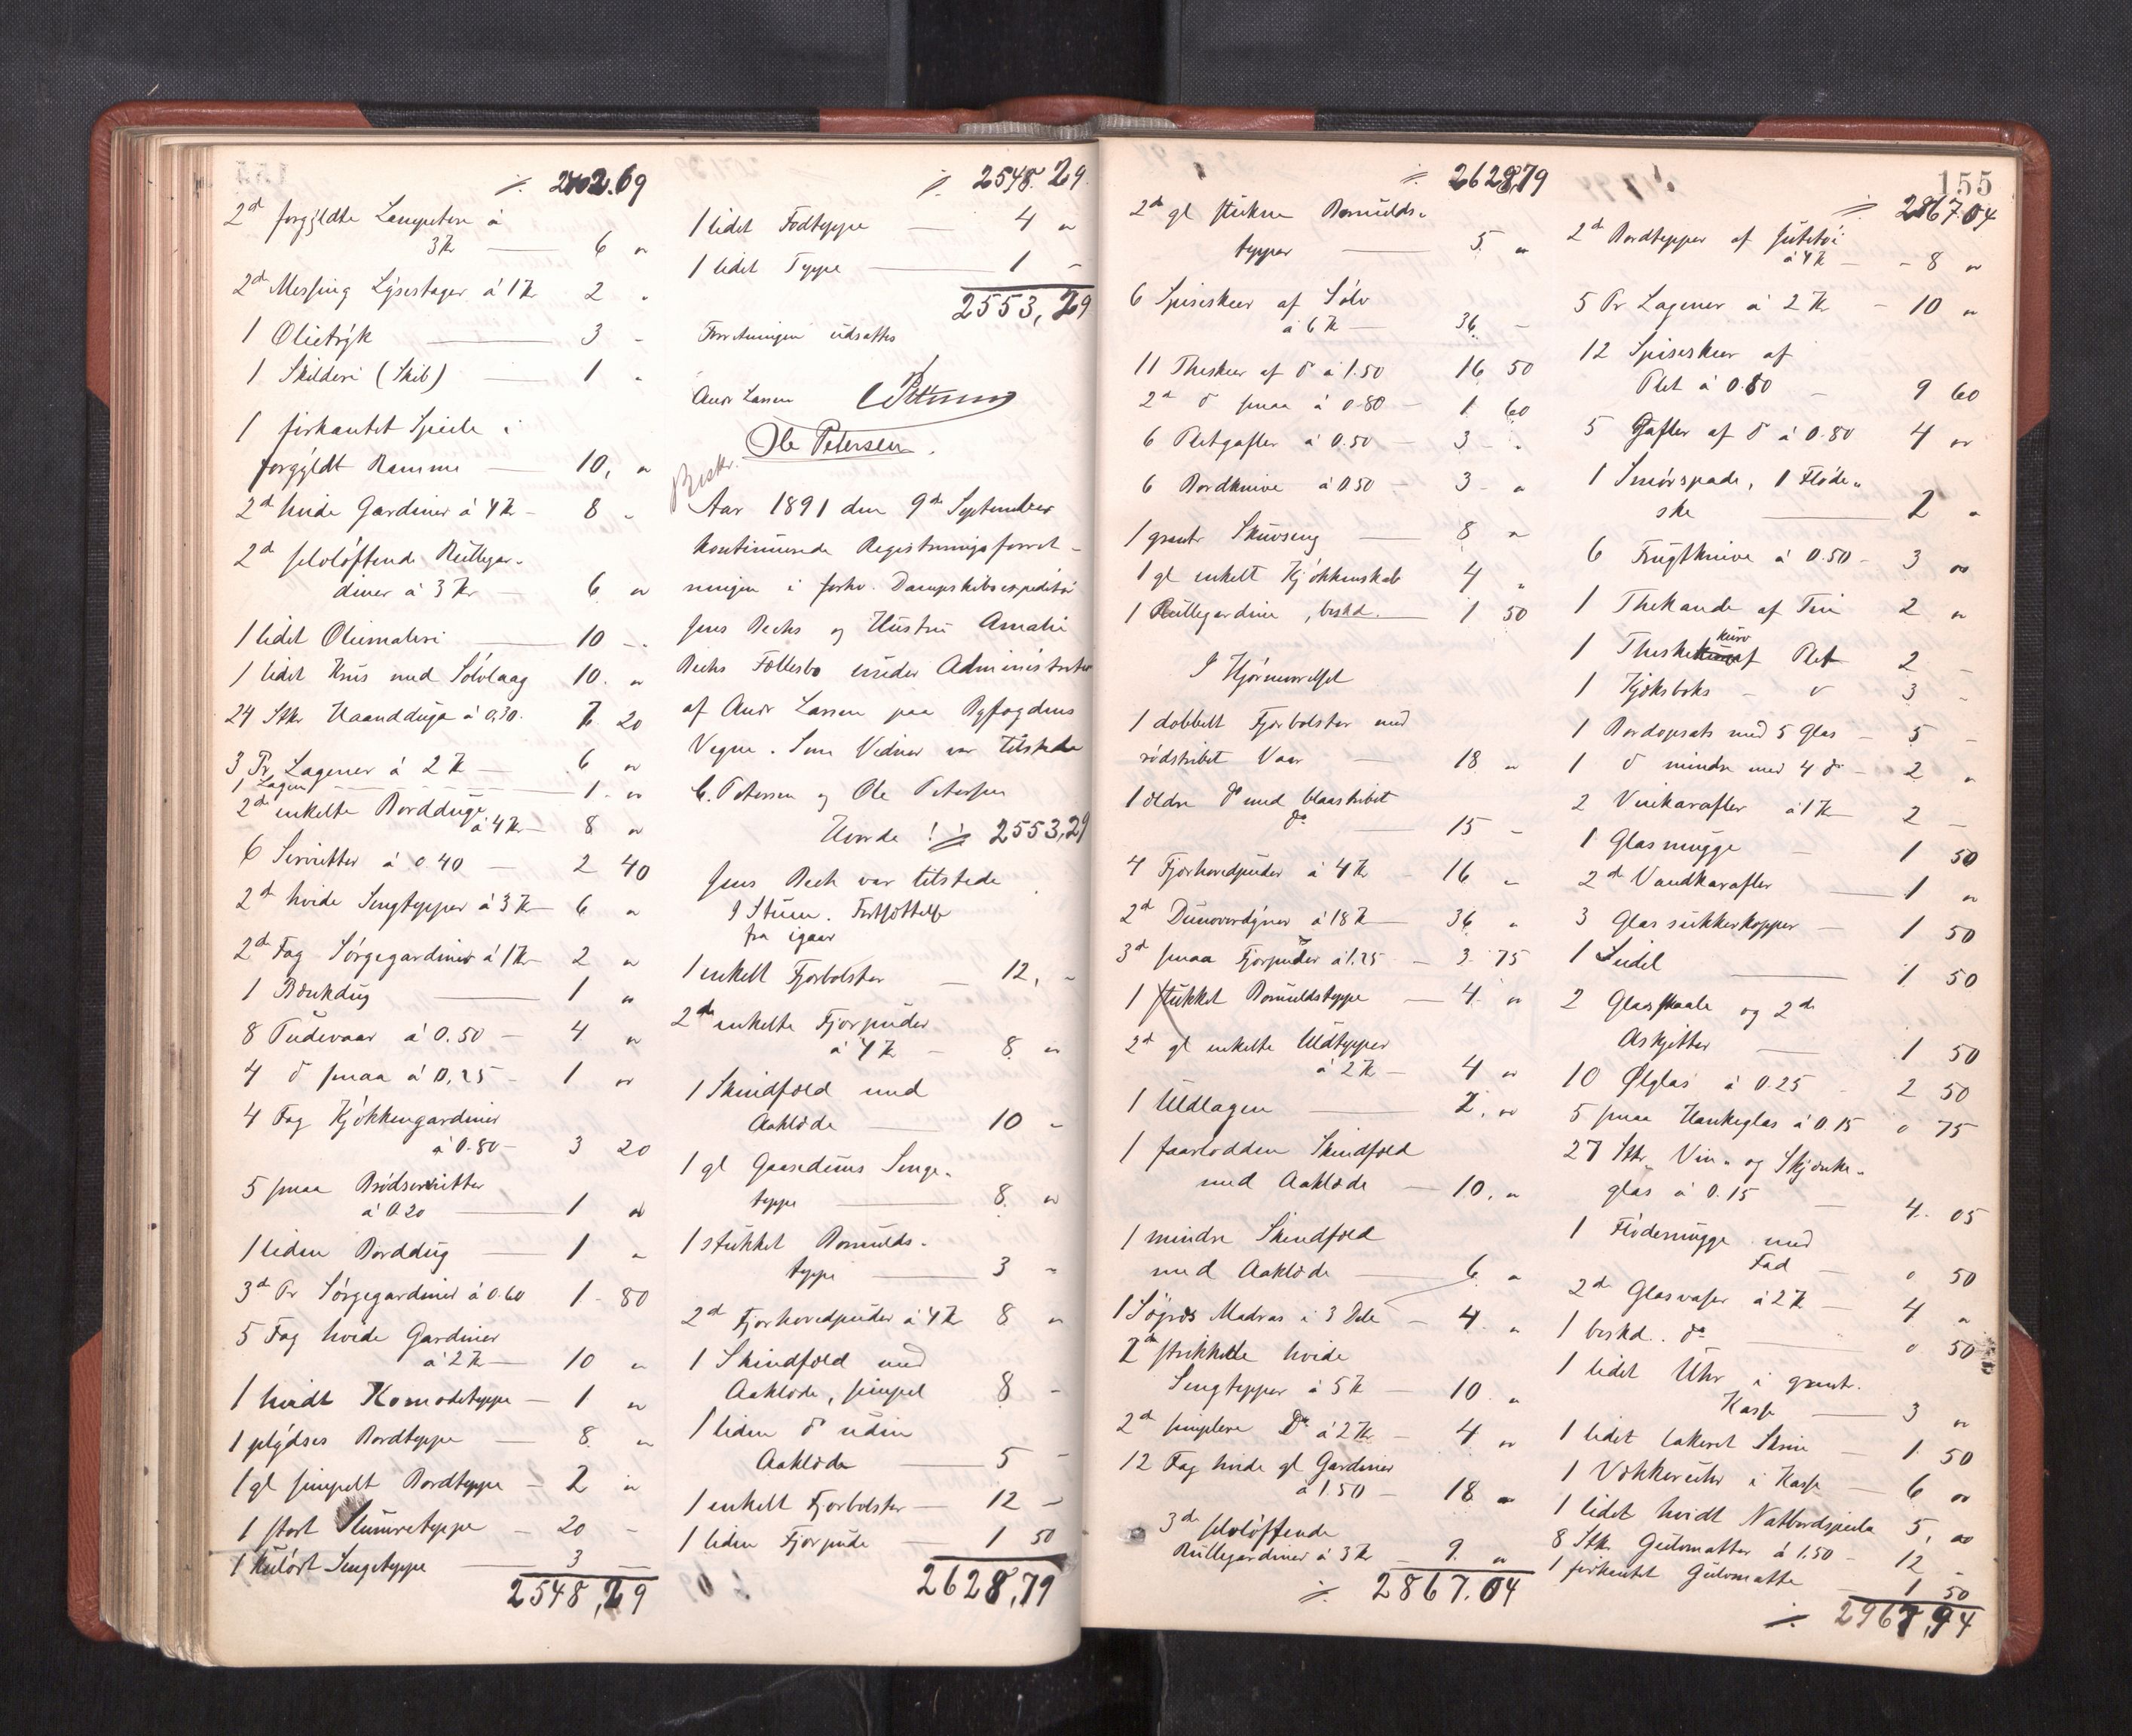 ·/. 2402.69
2d forgyldte Lampetter à
3 Kr — 6 "
2d Messing Lysestager à 1 Kr 2 "
1 Olietryk — 3 "
1 Skilderi (Skib) — 1 "
1 firkantet Speile i
forgyldt Ramme — 10, "
2d hvide Gardiner à 4 Kr - 8 "
2d selvløftende Rullegar-
diner à 3 Kr — 6 "
1 lidet Oliemaleri — 10 -
1 lidet Krus med Sølvlaag 10. "
24 Stkr Haandduge à 0,30. 7. 20
3 Pr Lagener à 2 Kr — 6 "
1 Lagen — 1. "
2d enkelte Bordduge
à 4 Kr — 8 "
6 Servietter à 0.40 — 2 40
2d hvide Sengtepper à 3 Kr — 6 "
2d Fag Sørgegardiner à 1 Kr 2 "
1 Bænkdug — 1 "
8 Pudevaar à 0.50 — 4 "
4 do smaa à 0,25 - 1 "
4 Fag Kjøkkengardiner
à 0.80 — 3 20
5 smaa Brødservietter
à 0.20 — 1 "
1 liden Borddug — 1 "
3d Pr Sørgegardiner à 0.60 1 - 80
5 Fag hvide Gardiner
à 2 Kr — 10 "
1 hvidt Komodeteppe — 1 "
1 plydses Bordteppe — 8. "
1 gl simpelt Bordteppe — 2 "
1 stort Slumreteppe — 20 -
1 kulørt Sengeteppe — 3 —
2548,29
·/. 2548.29
1 lidet Fodteppe — 4 "
1 lidet Teppe — 1 -
2553,29
Forretningen udsattes
Andr Larsen
Ole Petersen.
Beskr.
Aar 1891 den 9de September
kontinuerede Registreringsforret-
ningen i forhv. Dampskibsexpeditør
Jens Bechs og Hustru Amalie
Bechs Fællesbo under Administration
af Andr Larsen paa Byfogdens
Vegne. Som Vidner var tilstede
C. Petersen og Ole Petersen
Hvorde! ·/. 2553,29
Jens Bech var tilstede.
I Stuen. Fortsættelse
fra igaar
1 enkelt Fjorbolster — 12, -
2de enkelte Fjorpuder
à 4 Kr — 8. "
1 Skindfæld med
Aaklæde — 10 -
1 gl Gaaseduns Senge-
teppe — 8. "
1 stukket Bomulds-
teppe — 3 "
2d Fjorhovedpuder à 4 Kr 8 "
1 Skindfæld med
Aaklæde, simpel 8 -
1 liden do uden
Aaklæde — 5 -
1 enkelt Fjorbolster — 12 -
1 liden Fjorpude — 1 50
2628,79
155
·/. 2628,79
2de gl stukne Bomulds-
tepper — 5. "
6 Spiseskeer af Sølv
à 6 Kr — 36. -
11 Theskeer af do à 1.50 16 50
2d do smaa à 0.80 — 1. 60
6 Pletgafler à 0.50 — 3 - "
6 Bordknive à 0.50 — 3 - "
1 grønt Skuvseng — 8 "
1 gl enkelt Kjøkkenskab 4 "
1 Rullegardine, beskd. — 1 50
I Hjørneværelset
1 dobbelt Fjorbolster med
rødstribet Vaar — 18 "
1 ældre do med blaastribet
do — 15 -
4 Fjorhovedpuder à 4 Kr - 16 "
2d Dunoverdyner à 18 Kr — 36 "
3d smaa Fjorpuder à 1.25 — 3. 75
1 stukket Bomuldsteppe — 4. "
2d gl enkelte Uldtepper
à 2 Kr — 4 "
1 Uldlagen — 2. "
1 faarlodden Skindfæld
med Aaklæde — 10. "
1 mindre Skindfæld
med Aaklæde — 6. "
1 Søgræs Madras i 3 Dele — 4. "
2de strikkede hvide
Sengtepper à 5 Kr — 10. "
2d simplere Do à 2 Kr — 4 "
12 Fag hvide gl Gardiner
à 1.50 — 18 "
3de selvløftende
Rullegardiner à 3 Kr — 9. "
·/. 2867.04
·/. 2867.04
2d Bordtepper af Jutetøi
à 4 Kr — 8 "
5 Pr Lagener à 2 Kr — 10 "
12 Spiseskeer af
Plet à 0.80 — 9 60
5 Gafler af do à 0.80 4 "
1 Smørspade, 1 Fløde-
ske — 2 "
6 Frugtknive à 0.50 — 3 "
1 Thekande af Tin 2 "
kurv
1 Theske af Plet 2 -
1 Kjæksboks — v 3 -
1 Bordopsats med 5 Glas — 5 -
1 do mindre med 4 do — 2 "
2 Vinkarafler à 1 Kr — 2 -
1 Glasmugge — 1 50
2d Vandkarafler — 1 "
3 Glas sukkerkopper — 1 50
1 Seidel — 1. 50
2 Glasskaale og 2de
Askjetter — 1 50
10 Ølglas à 0.25 2 50
5 smaa Hankeglas à 0.15 0 75
27 Stkr. Vin- og Skjænke-
glas à 0.15 — 4. 05
1 Flødemugge med
Fad — 0 50
2de Glasvaser à 2 Kr — 4 "
1 beskd. do — 0 50
1 lidet Uhr i grønt.
Kasse — 3 "
1 lidet lakeret Skrin — 1. 50
1 Vækkeruhr i Kasse — 6 "
1 lidet hvidt Natbordspeile 5, "
8 Stkr Gulvmatter à 1.50 — 12 -
1 firkantet Gulvmatte — 1 50
·/. 2967,94